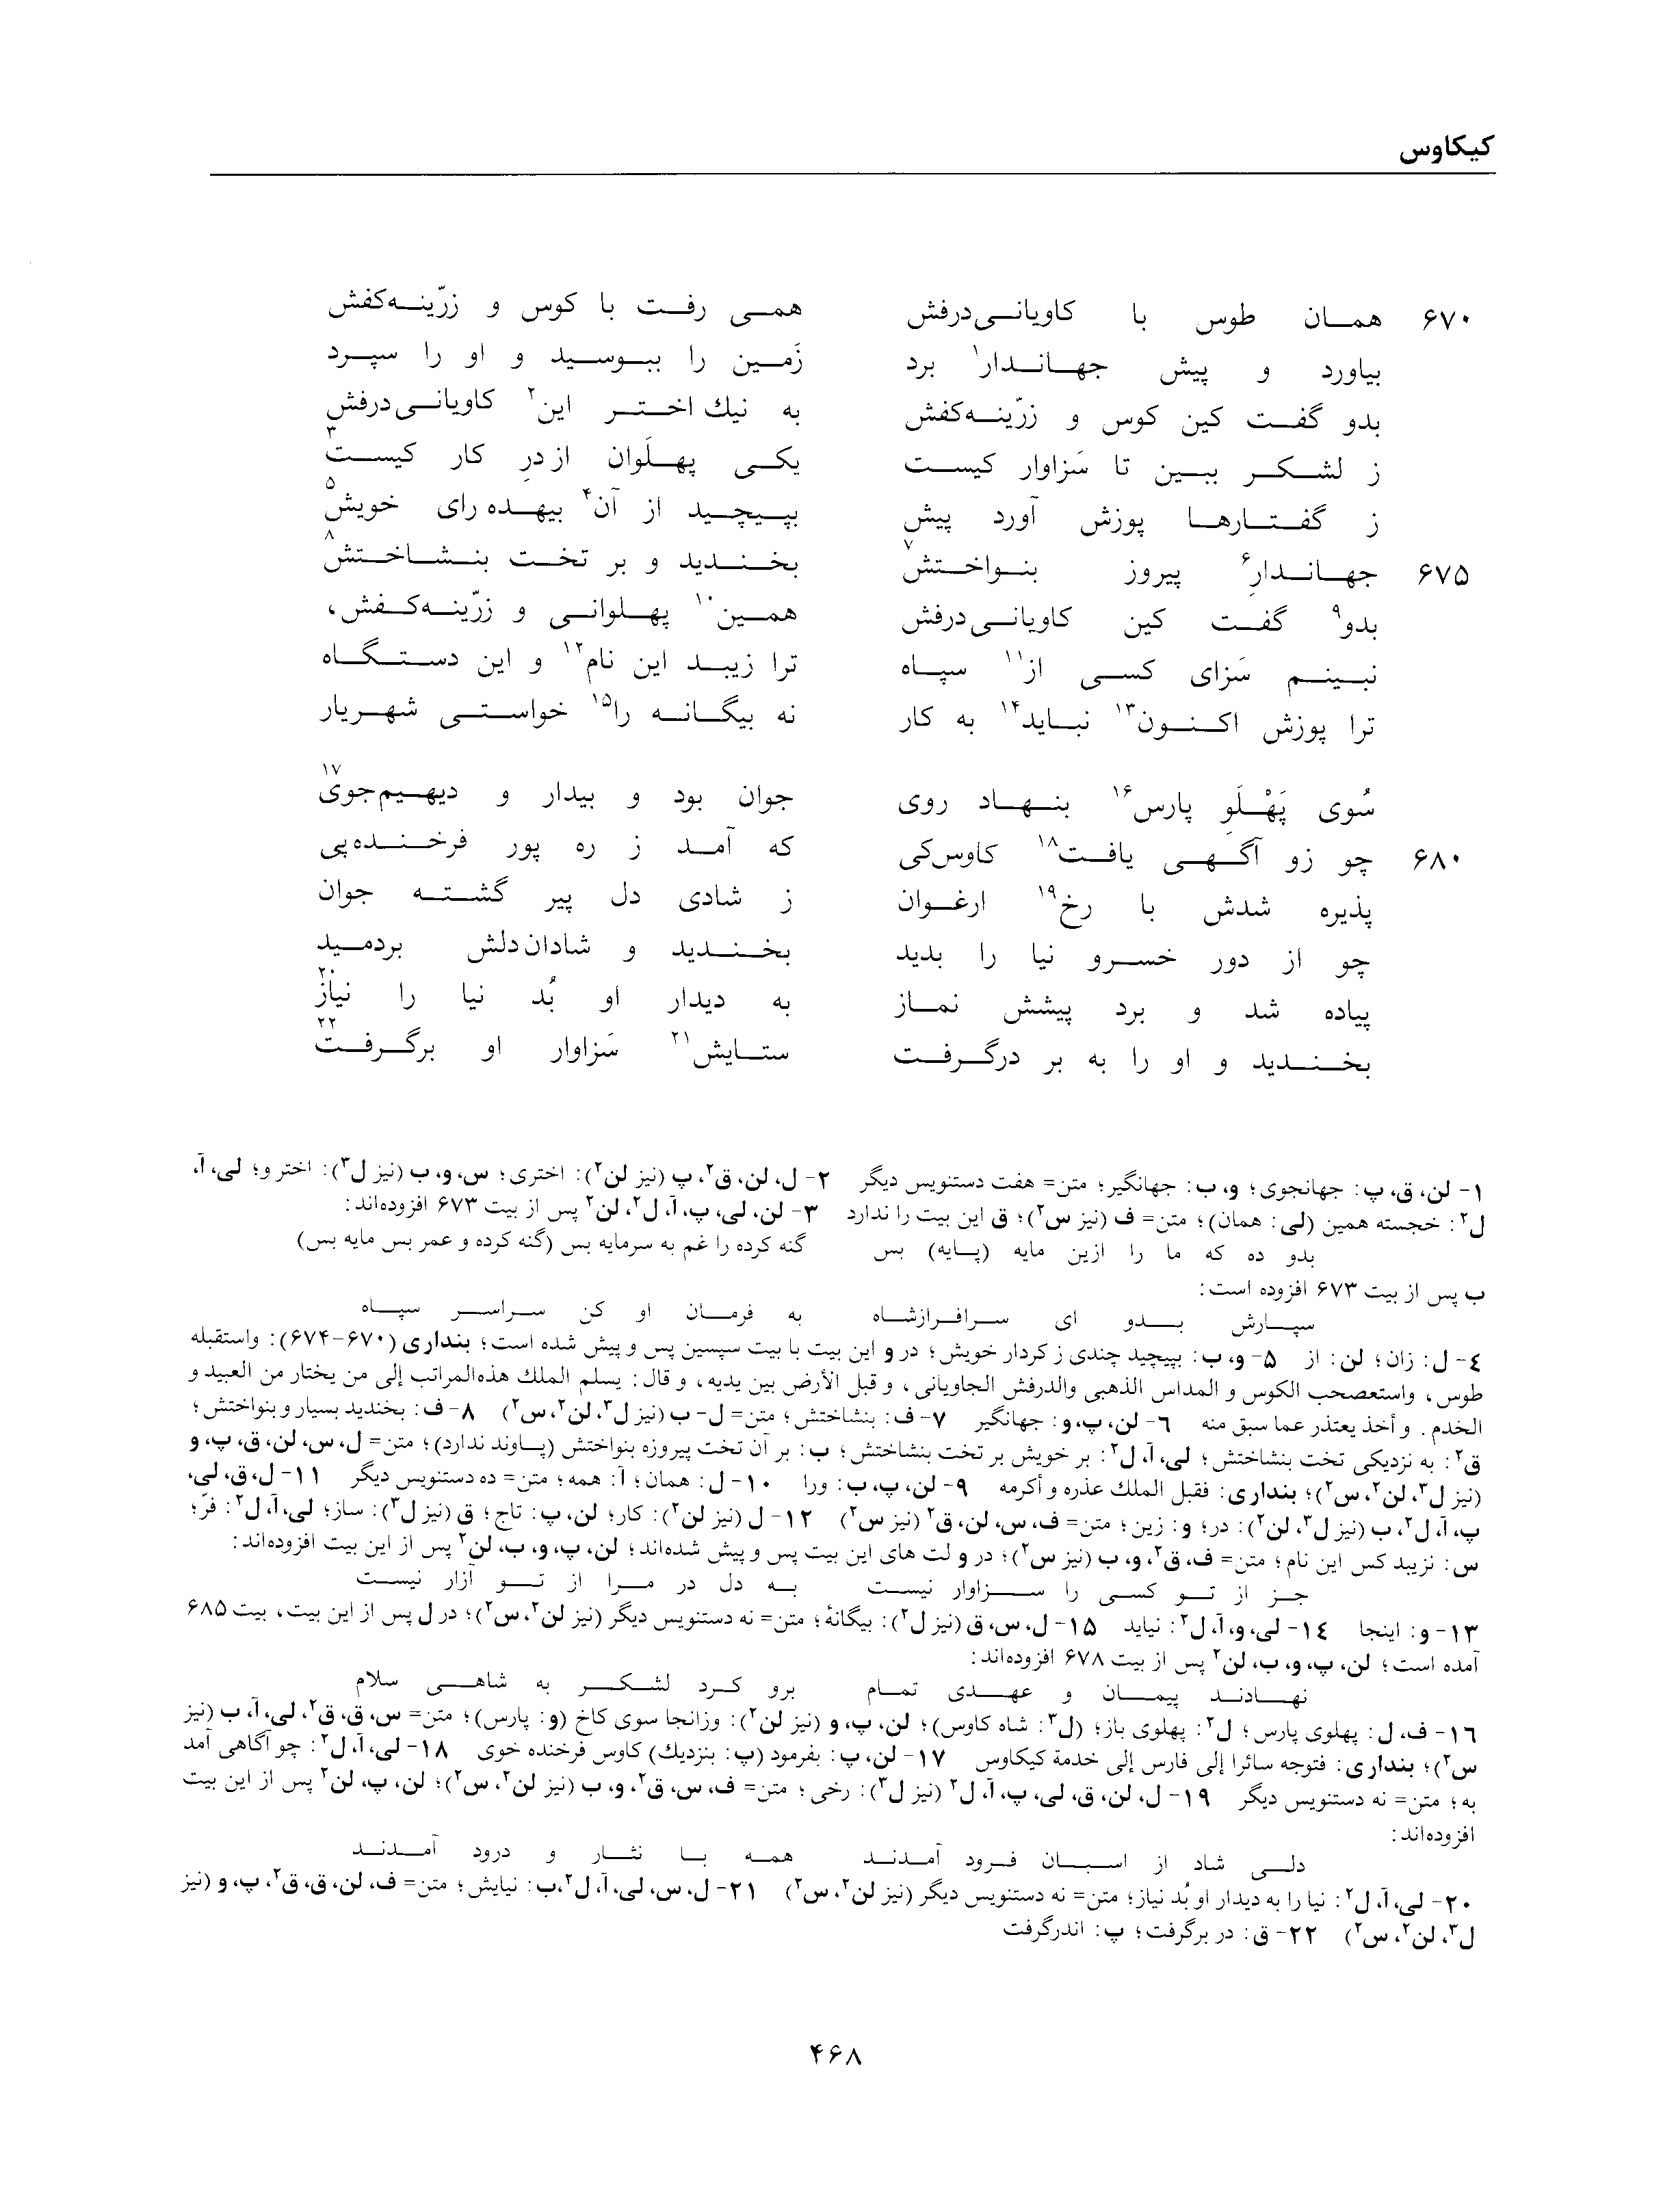 کیکاوس
۶۷۰ همان طوس با کاویانی‌درفش همی رفت با کوس و زرّینه‌کفش
بیاورد و پیش جهاندار۱ برد زَمین را ببوسید و او را سپرد
بدو گفت کین کوس و زرّینه‌کفش به نیك اختر این۲ کاویانی‌درفش
ز لشکر ببین تا سَزاوار کیست یکی پهلَوان از درِ کار کیست۳
ز گفتارها پوزش آورد پیش بپیچید از آن۴ بیهده رای خویش۵
۶۷۵ جهاندارِ۶ پیروز بنواختش۷ بخندید و بر تخت بنشاختش۸
بدو۹ گفت کین کاویانی‌درفش همین۱۰ پهلوانی و زرّینه‌کفش،
نبینم سَزای کسی از۱۱ سپاه ترا زیبد این نام۱۲ و این دستگاه
ترا پوزش اکنون۱۳ نباید۱۴ به کار نه بیگانه را۱۵ خواستی شهریار
سُوی پَهْلَوِ پارس۱۶ بنهاد روی جوان بود و بیدار و دیهیم‌جوی۱۷
۶۸۰ چو زو آگهی یافت۱۸ کاوس‌کی که آمد ز ره پور فرخنده‌پی
پذیره شدش با رخ۱۹ ارغوان ز شادی دل پیر گشته جوان
چو از دور خسرو نیا را بدید بخندید و شادان دلش بردمید
پیاده شد و برد پیشش نماز به دیدار او بُد نیا را نیاز۲۰
بخندید و او را به بر درگرفت ستایش۲۱ سَزاوار او برگرفت۲۲
۱- لن، ق، پ: جهانجوی؛ و، ب: جهانگیر؛ متن= هفت دستنویس دیگر ۲- ل، لن، ق۲، پ (نیز لن۲): اختری؛ س، و، ب (نیز ل۳): اختر و؛ لی، آ،
ل۲: خجسته همین (لی: همان)؛ متن= ف (نیز س۲)؛ ق این بیت را ندارد ۳- لن، لی، پ، آ، ل۲، لن۲ پس از بیت ۶۷۳ افزوده‌اند:
بدو ده که ما را ازین مایه (پایه) بس گنه کرده را غم به سرمایه بس (گنه کرده و عمر بس مایه بس)
ب پس از بیت ۶۷۳ افزوده است:
سپارش بدو ای سرافرازشاه به فرمان او کن سراسر سپاه
۴- ل: زان؛ لن: از ۵- و، ب: بپیچید چندی ز کردار خویش؛ در و این بیت با بیت سپسین پس و پیش شده است؛ بنداری (۶۷۰-۶۷۴): واستقبله
طوس، واستعصحب الکوس و المداس الذهبی والدرفش الجاویانی، و قبل الأرض بین یدیه، و قال: یسلم الملك هذه المراتب إلی من یختار من العبید و
الخدم. و أخذ یعتذر عما سبق منه ۶- لن، پ، و: جهانگیر ۷- ف: بنشاختش؛ متن= ل- ب (نیز ل۳، لن۲، س۲) ۸- ف: بخندید بسیار و بنواختش؛
ق۲: به نزدیکی تخت بنشاختش؛ لی، آ، ل۲: بر خویش بر تخت بنشاختش؛ ب: بر آن تخت پیروزه بنواختش (پساوند ندارد)؛ متن= ل، س، لن، ق، پ، و
(نیز ل۳، لن۲، س۲)؛ بنداری: فقبل الملك عذره و أکرمه ۹- لن، پ، ب: ورا ۱۰- ل: همان؛ آ: همه؛ متن= ده دستنویس دیگر ۱۱- ل، ق، لی،
پ، آ، ل۲، ب (نیز ل۳، لن۲): در؛ و: زین؛ متن= ف، س، لن، ق۲ (نیز س۲) ۱۲- ل (نیز لن۲): کار؛ لن، پ: تاج؛ ق (نیز ل۳): ساز؛ لی، آ، ل۲: فرّ؛
س: نزیبد کس این نام؛ متن= ف، ق۲، و، ب (نیز س۲)؛ در و لت های این بیت پس و پیش شده‌اند؛ لن، پ، و، ب، لن۲ پس از این بیت افزوده‌اند:
جز از تو کسی را سزاوار نیست به دل در مرا از تو آزار نیست
۱۳- و: اینجا ۱۴- لی، و، آ، ل۲: نیاید ۱۵- ل، س، ق (نیز ل۲): بیگانهٔ؛ متن= نه دستنویس دیگر (نیز لن۲، س۲)؛ در ل پس از این بیت، بیت ۶۸۵
آمده است؛ لن، پ، و، ب، لن۲ پس از بیت ۶۷۸ افزوده‌اند:
نهادند پیمان و عهدی تمام برو کرد لشکر به شاهی سلام
۱۶- ف، ل: پهلوی پارس؛ ل۲: پهلوی باز؛ (ل۳: شاه کاوس)؛ لن، پ، و (نیز لن۲): وزانجا سوی کاخ (و: پارس)؛ متن= س، ق، ق۲، لی، آ، ب (نیز
س۲)؛ بنداری: فتوجه سائرا إلی فارس إلی خدمة کیکاوس ۱۷- لن، پ: بفرمود (پ: بنزدیك) کاوس فرخنده خوی ۱۸- لی، آ، ل۲: چو آگاهی آمد
به؛ متن= نه دستنویس دیگر ۱۹- ل، لن، ق، لی، پ، آ، ل۲ (نیز ل۳): رخی؛ متن= ف، س، ق۲، و، ب (نیز لن۲، س۲)؛ لن، پ، لن۲ پس از این بیت
افزوده‌اند:
دلی شاد از اسبان فرود آمدند همه با نثار و درود آمدند
۲۰- لی، آ، ل۲: نیا را به دیدار او بُد نیاز؛ متن= نه دستنویس دیگر (نیز لن۲، س۲) ۲۱- ل، س، لی، آ، ل۲، ب: نیایش؛ متن= ف، لن، ق، ق۲، پ، و (نیز
ل۳، لن۲، س۲) ۲۲- ق: در برگرفت؛ پ: اندرگرفت
۴۶۸